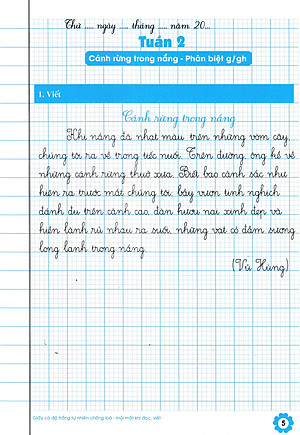 Thứ ..... ngày ..... tháng ..... năm 20...
Tuần 2
Cánh rừng trong nắng - Phân biệt g/gh
1. Viết
Cánh rừng trong nắng
Khi nắng đã nhạt màu trên những vòm cây,
chúng tôi ra về trong tiếc nuối. Trên đường, ông kể về
những cánh rừng thuở xưa. Biết bao cảnh sắc như
hiện ra trước mắt chúng tôi: bầy vượn tinh nghịch
đánh đu trên cành cao, đàn hươu nai xinh đẹp và
hiền lành rủ nhau ra suối, những vạt cỏ đẫm sương
long lanh trong nắng.
(Vũ Hùng)
Giấy có độ trắng tự nhiên chống loá - mỏi mắt khi đọc, viết
5